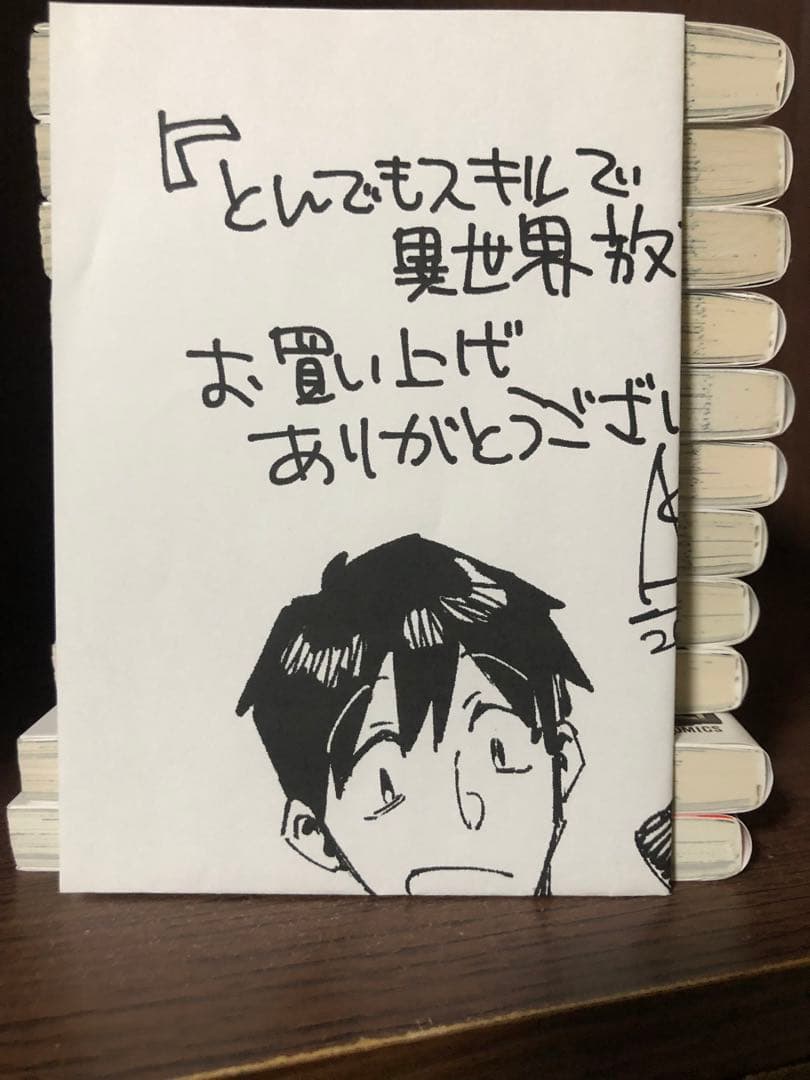 『とんでもスキルで
異世界放
お買い上げ
ありがとうござい
2
COMICS